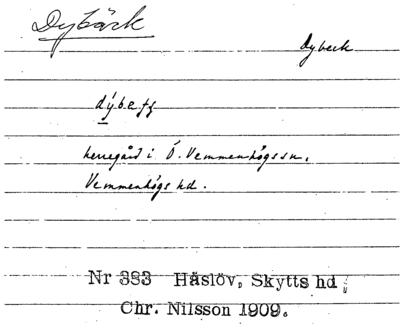 Dybäck
dybeck
herregård i Ö. Vemmenhögs sn.
Vemmenhögs hd.
Nr 383 Häslöv, Skytts hd
Chr. Nilsson 1909.